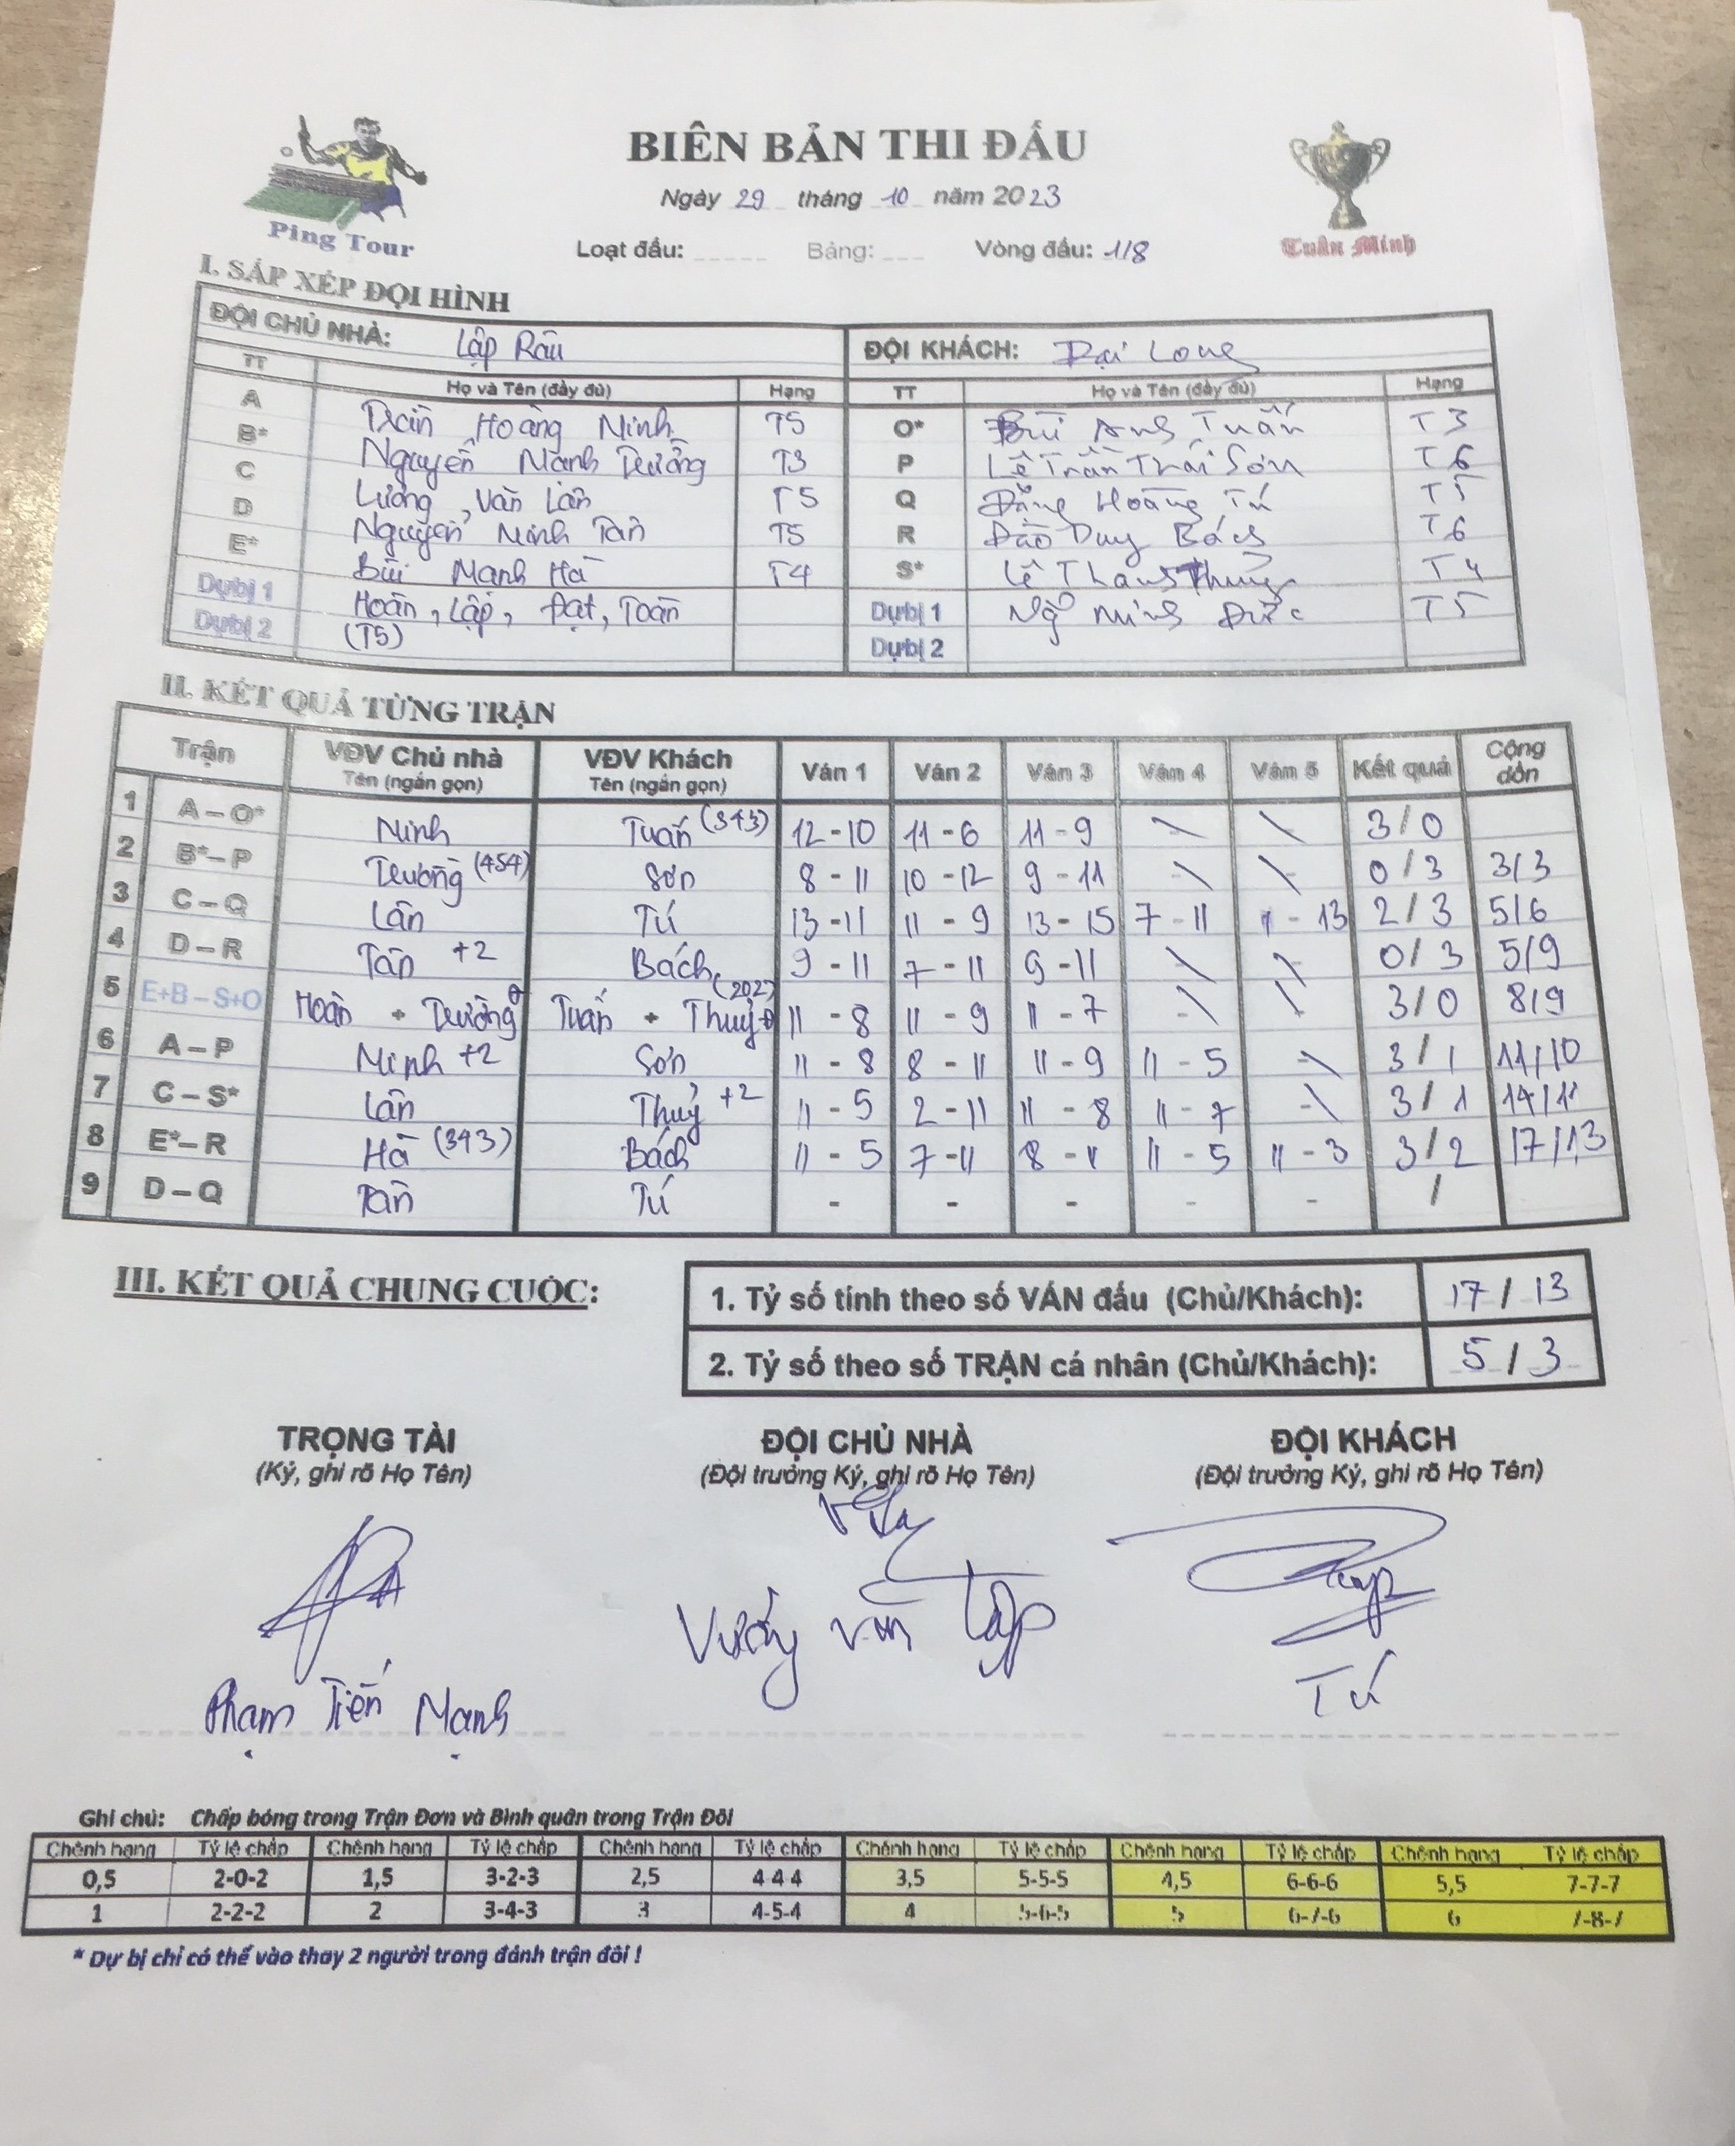 BIÊN BẢN THI ĐẤU
Ngày 29 tháng 10 năm 2023
Ping Tour
Tuấn Minh
Loạt đấu: Bảng: Vòng đấu: 1/8
I. SẮP XẾP ĐỘI HÌNH
ĐỘI CHỦ NHÀ: Lập Râu ĐỘI KHÁCH: Đại Long
TT Họ và Tên (đầy đủ) Hạng TT Họ và Tên (đầy đủ) Hạng
A Trần Hoàng Minh T5 O* Bùi Anh Tuấn T3
B* Nguyễn Mạnh Trường T3 P Lê Trần Thái Sơn T6
C Lường Văn Lân T5 Q Đặng Hoàng Tú T5
D Nguyễn Minh Tân T5 R Đào Duy Bách T6
E* Bùi Mạnh Hà T4 S* Lê Thanh Thủy T4
Dự bị 1 Hoàn, Lập, Đạt, Toàn Dự bị 1 Ngô Minh Đức T5
Dự bị 2 (T5) Dự bị 2
II. KẾT QUẢ TỪNG TRẬN
Trận VĐV Chủ nhà Tên (ngắn gọn) VĐV Khách Tên (ngắn gọn) Ván 1 Ván 2 Ván 3 Ván 4 Ván 5 Kết quả Cộng dồn
1 A – O* Minh Tuấn (343) 12 - 10 11 - 6 11 - 9 3/0
2 B* – P Trường (454) Sơn 8 - 11 10 - 12 9 - 11 0/3 3/3
3 C – Q Lân Tú 13 - 11 11 - 9 13 - 15 7 - 11 11 - 13 2/3 5/6
4 D – R Tân +2 Bách 9 - 11 7 - 11 9 - 11 0/3 5/9
5 E+B – S+O Hoàn + Trường Tuấn + Thuỷ (202) 11 - 8 11 - 9 11 - 7 3/0 8/9
6 A – P Minh +2 Sơn 11 - 8 8 - 11 11 - 9 11 - 5 3/1 11/10
7 C – S* Lân Thuỷ +2 11 - 5 2 - 11 11 - 8 11 - 7 3/1 14/11
8 E* – R Hà (343) Bách 11 - 5 7 - 11 8 - 11 11 - 5 11 - 3 3/2 17/13
9 D – Q Tân Tú - - - - - /
III. KẾT QUẢ CHUNG CUỘC:
1. Tỷ số tính theo số VÁN đấu (Chủ/Khách): 17 / 13
2. Tỷ số theo số TRẬN cá nhân (Chủ/Khách): 5 / 3
TRỌNG TÀI ĐỘI CHỦ NHÀ ĐỘI KHÁCH
(Ký, ghi rõ Họ Tên) (Đội trưởng Ký, ghi rõ Họ Tên) (Đội trưởng Ký, ghi rõ Họ Tên)
Phạm Tiến Mạnh Vương Văn Lập Tú
Ghi chú: Chấp bóng trong Trận Đơn và Bình quân trong Trận Đôi
Chênh hạng Tỷ lệ chấp Chênh hạng Tỷ lệ chấp Chênh hạng Tỷ lệ chấp Chênh hạng Tỷ lệ chấp Chênh hạng Tỷ lệ chấp Chênh hạng Tỷ lệ chấp
0,5 2-0-2 1,5 3-2-3 2,5 4-4-4 3,5 5-5-5 4,5 6-6-6 5,5 7-7-7
1 2-2-2 2 3-4-3 3 4-5-4 4 5-6-5 5 6-7-6 6 7-8-7
* Dự bị chỉ có thể vào thay 2 người trong đánh trận đôi !